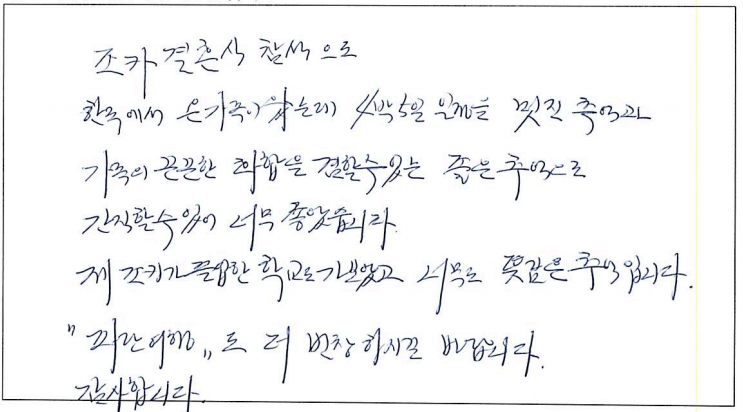 조카 결혼식 참석으로
한국에서 온가족이 왔는데 4박5일 일정을 멋진 추억과
가족의 끈끈한 화합을 겸할수있는 좋은추억으로
간직할수있어 너무 좋았습니다.
제 조카가 졸업한 학교도가보았고 너무도 뜻깊은추억입니다.
"파란여행" 도 더 번창하시길 바랍니다.
감사합니다.